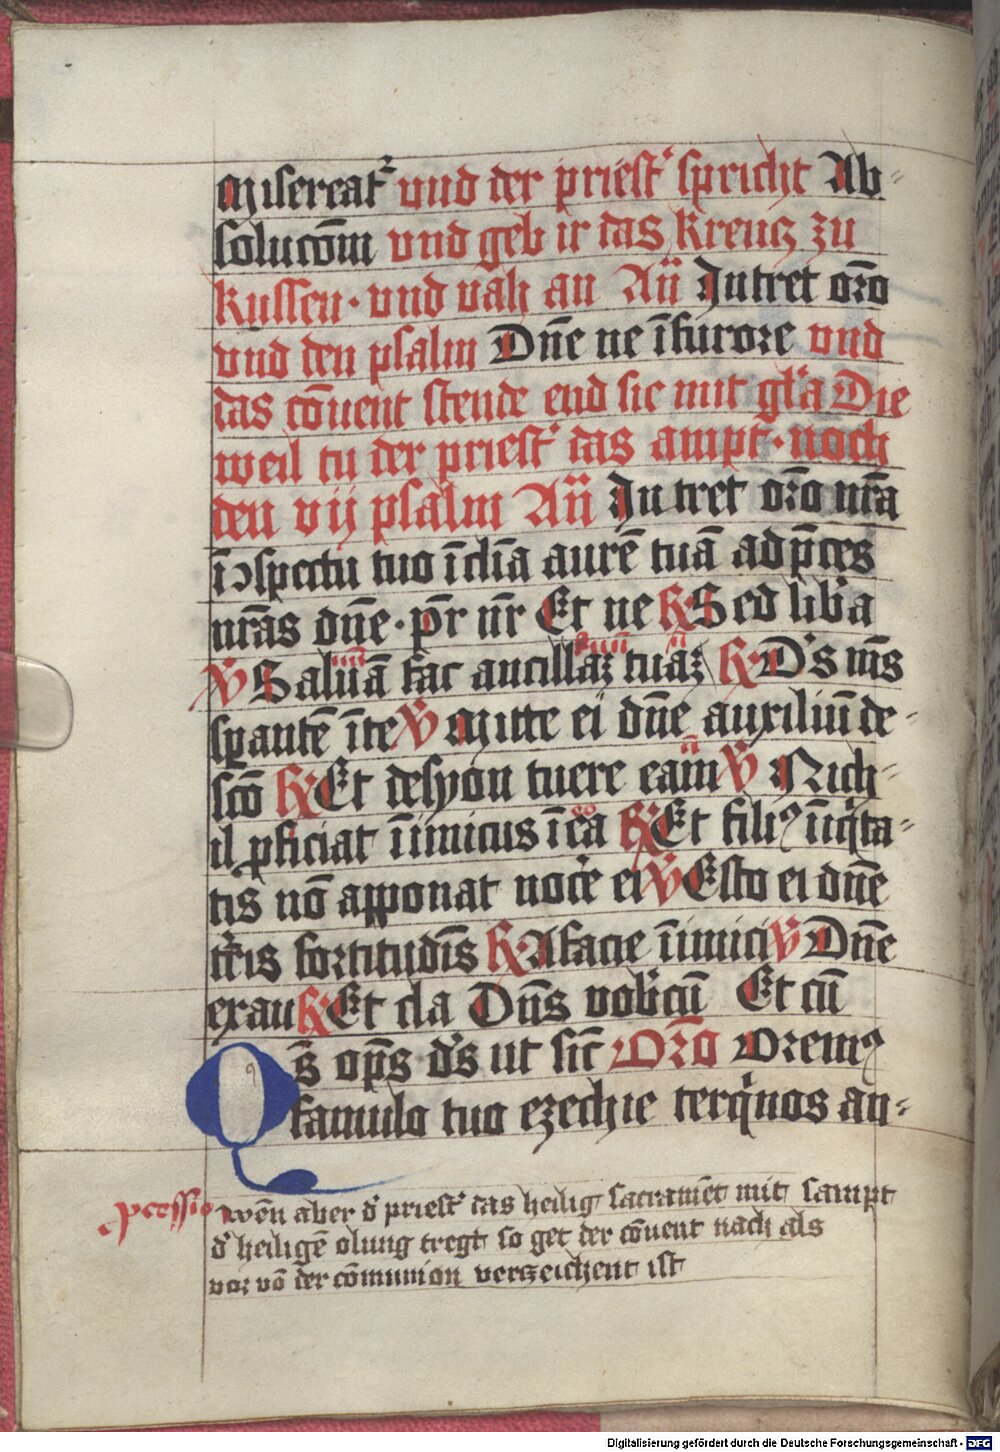 Misereat᷑ vnd der priest᷑ spricht Ab⸗
solucōm vnd geb ir das kreucz zu
kussen · vnd vah an An̄ Intret orō
vnd den psalm Dn̄e ne ī furore vnd
das cōuent stende end sie mit gl'a Die
weil tu der priest᷑ das ampt · noch
den vij psalm An̄ Intret orō nr̄a
ī ↄspectu tuo īclīa aurē tuā ad p̄ces
nr̄as dn̄e · pr̄ nr̄ Et ne ℟ Sed lib'a
℣ Saluā fac ancillaꝫ tuaꝫ ℟ D's m̄s
sꝑantē ī te ℣ Mitte ei dn̄e auxiliū de⸗
scō ℟ Et desyon tuere eam ℣ Nich⸗
il ꝓficiat īimicus ī ea ℟ Et filiꝰ īiq'ta⸗
tis nō apponat noc'e ei ℣ Esto ei dn̄e
t'ris fortitudīs ℟ A facie īimici ℣ Dn̄e
exau ℟ Et cla Dn̄s vob'cū Et cū
Os op̄s d's ut sic᷑ Orō Oremꝰ
famulo tuo ezechie terq'nos an⸗
ꝓcessio wēn aber d' priest᷑ das heilig sacramēt mit sampt
d' heiligē olung tregt so get der cōuent nach als
vor vō der cōmunion verzeichent ist
Digitalisierung gefördert durch die Deutsche Forschungsgemeinschaft - DFG